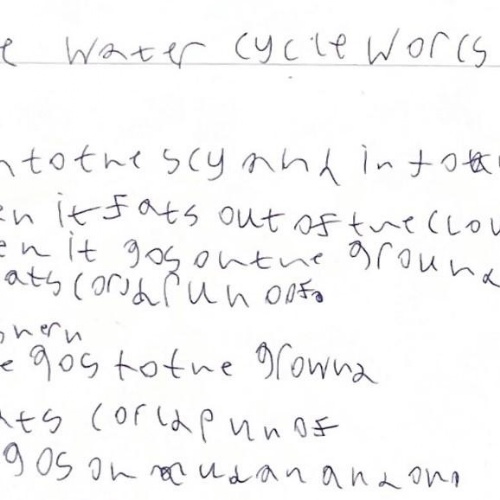 e water cycle Worcs
ntothe scy and into
en it fats out of the clou
en it gos onthe ground
ats corld runoof.
e gos tothe grownd
ats corld runof
gos on anandon